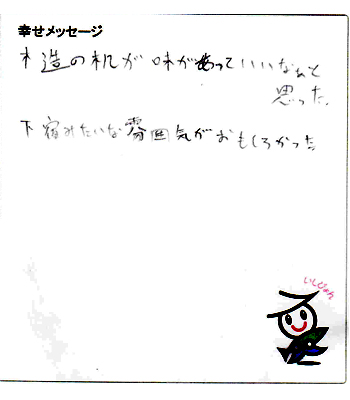 幸せメッセージ
木造の机が味があっていいなぁと
思った。
下宿みたいな雰囲気がおもしろかった
いしぴょん